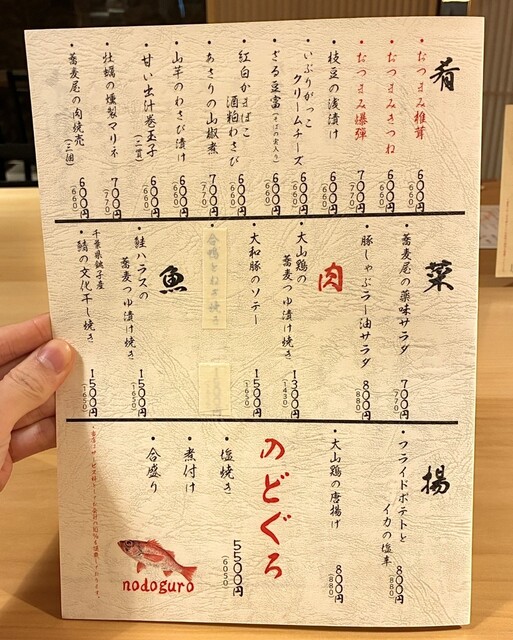 肴
・おつまみ椎茸
600円
(660)
・おつまみきつね
600円
(660)
・おつまみ爆弾
700円
(770)
・枝豆の浅漬け
600円
(660)
・いぶりがっこ
クリームチーズ
600円
(660)
・ざる豆富(そばの実入り)
600円
(660)
・紅白かまぼこ
酒粕わさび
600円
(660)
・あさりの山椒煮
700円
(770)
・山芋のわさび漬け
600円
(660)
・甘い出汁巻玉子(二貫)
600円
(660)
・牡蠣の燻製マリネ
700円
(770)
・蕎麦屋の肉焼売(三個)
600円
(660)
菜
・蕎麦屋の薬味サラダ
700円
(770)
・豚しゃぶラー油サラダ
800円
(880)
肉
・大山鶏の
蕎麦つゆ漬け焼き
1300円
(1430)
・大和豚のソテー
1500円
(1650)
魚
・鮭ハラスの
蕎麦つゆ漬け焼き
1500円
(1650)
・千葉県銚子産
鯖の文化干し焼き
1500円
(1650)
揚
・フライドポテトと
イカの塩辛
800円
(880)
・大山鶏の唐揚げ
800円
(880)
のどぐろ
・塩焼き
・煮付け
・合盛り
5500円
(6050)
nodoguro